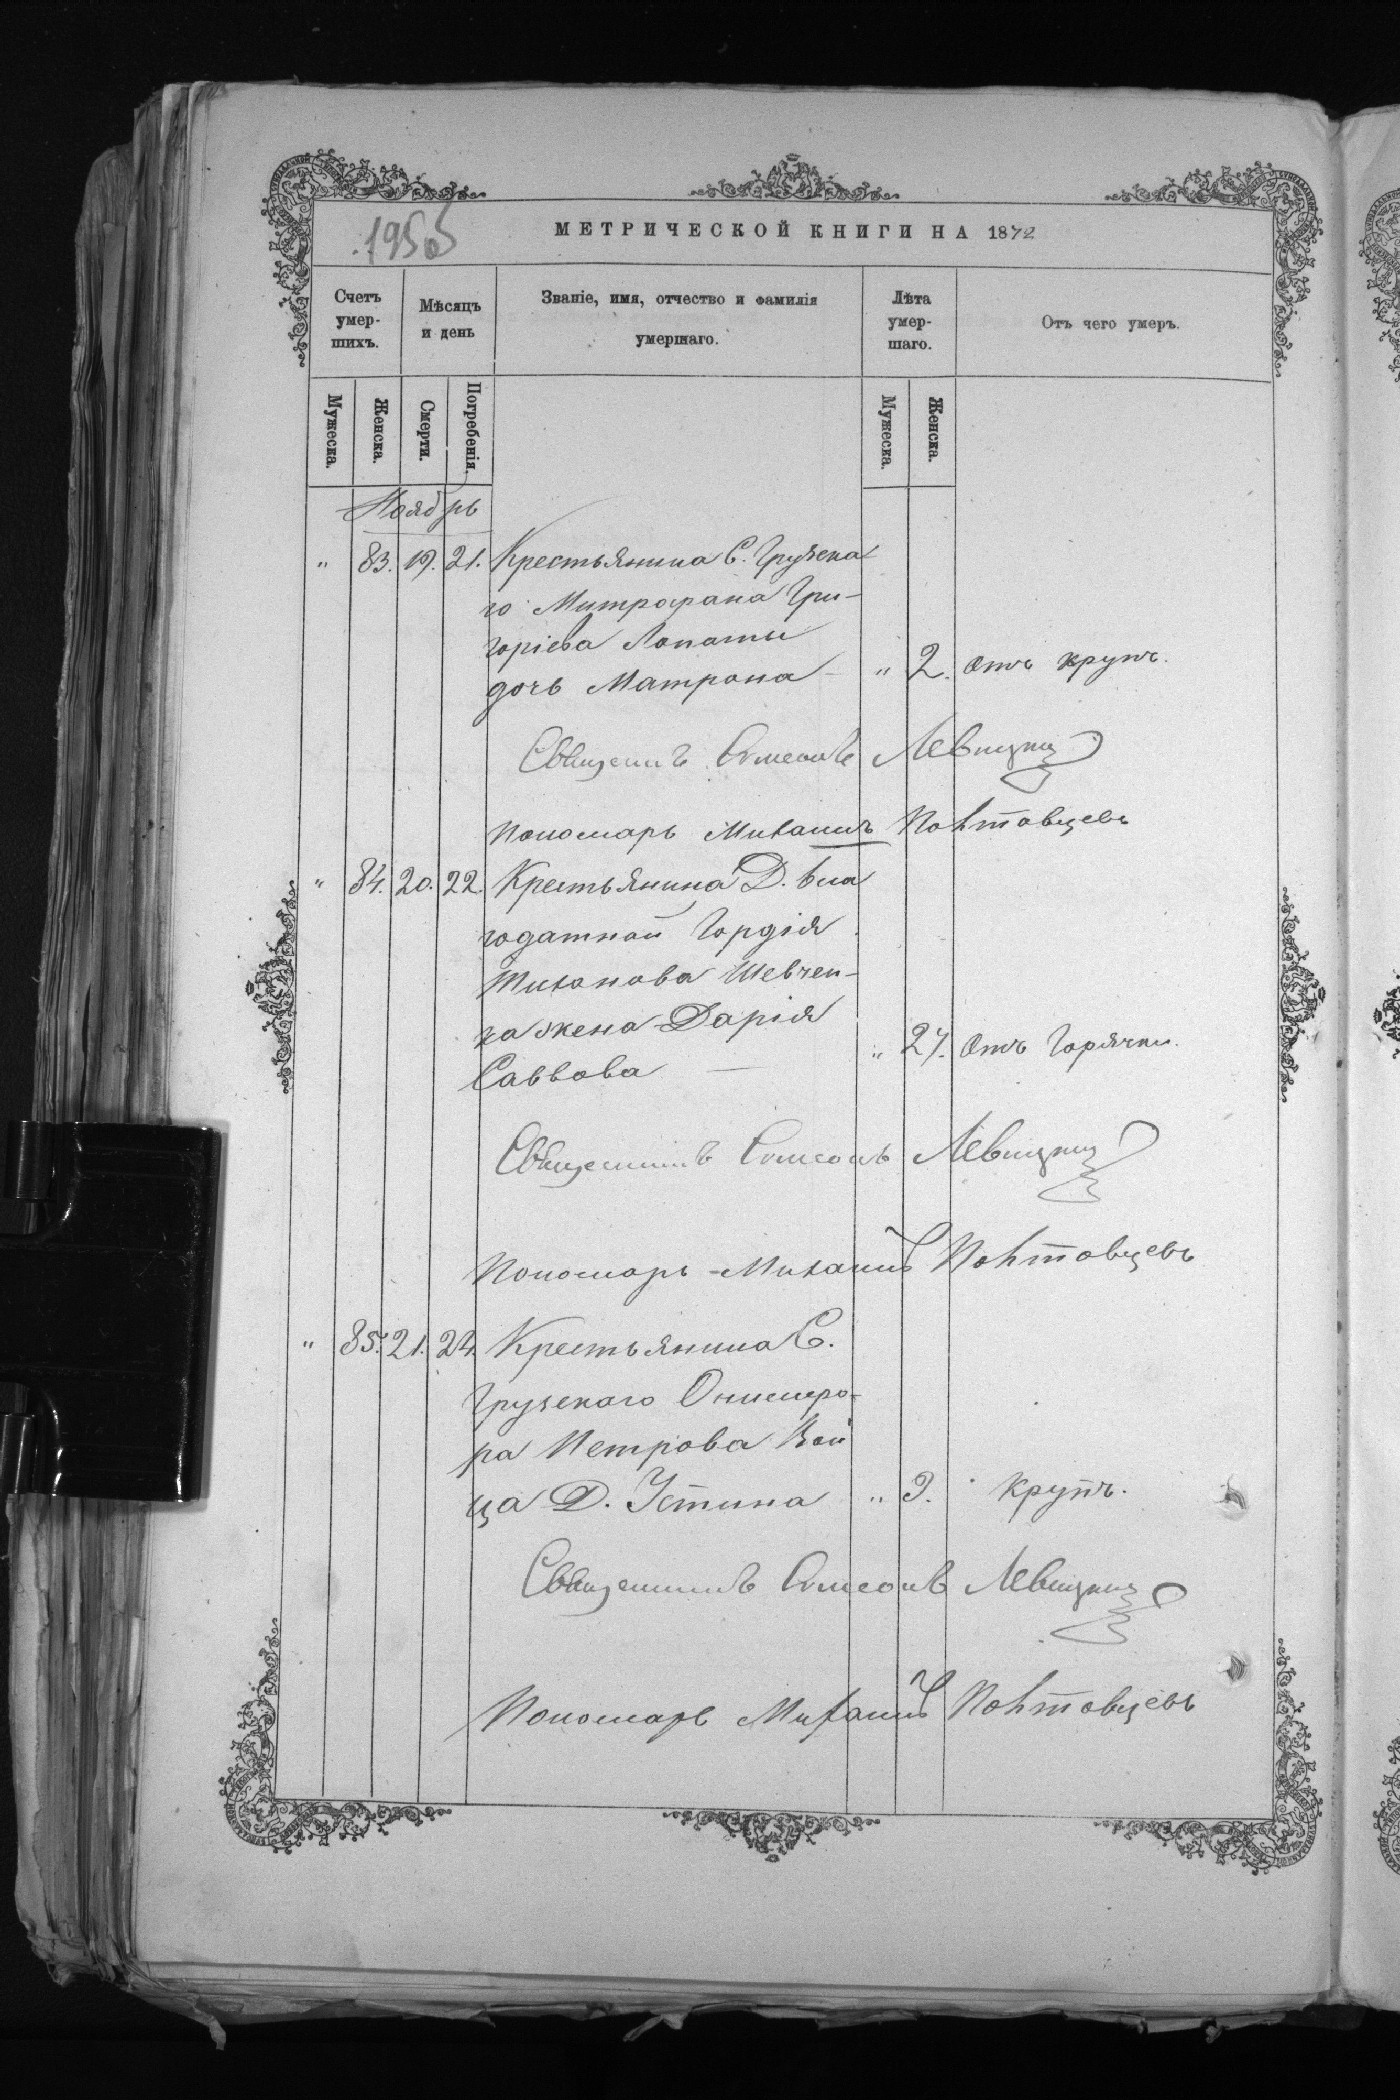 195об
МЕТРИЧЕСКОЙ КНИГИ НА 1872
Счетъ умерших. Мѣсяцъ и день Званіе, имя, отчество и фамилія умершаго. Лѣта умершаго. Отъ чего умеръ.
Мужеска. Женска. Смерти. Погребенія. Мужеска. Женска.
Ноябрь
" 83. 19. 21. Крестьянина С. Грузска
го Митрофана Гри-
горіева Лопаты
дочь Матрона - " 2. отъ крупъ.
Священникъ Симеонъ Левицкій
Пономарь Михаилъ Полтавцевъ
" 84. 20. 22. Крестьянина Д. Бла
годатной Гордія
Тихонова Шевчен-
ка жена Дарія
Саввова - " 27. отъ горячки.
Священникъ Симеонъ Левицкій
Пономарь Михаилъ Полтавцевъ
" 85. 21. 24. Крестьянина С.
Грузскаго
ра Петрова
ца Д. Устина " 3. крупъ.
Священникъ Симеонъ Левицкій
Пономарь Михаилъ Полтавцевъ